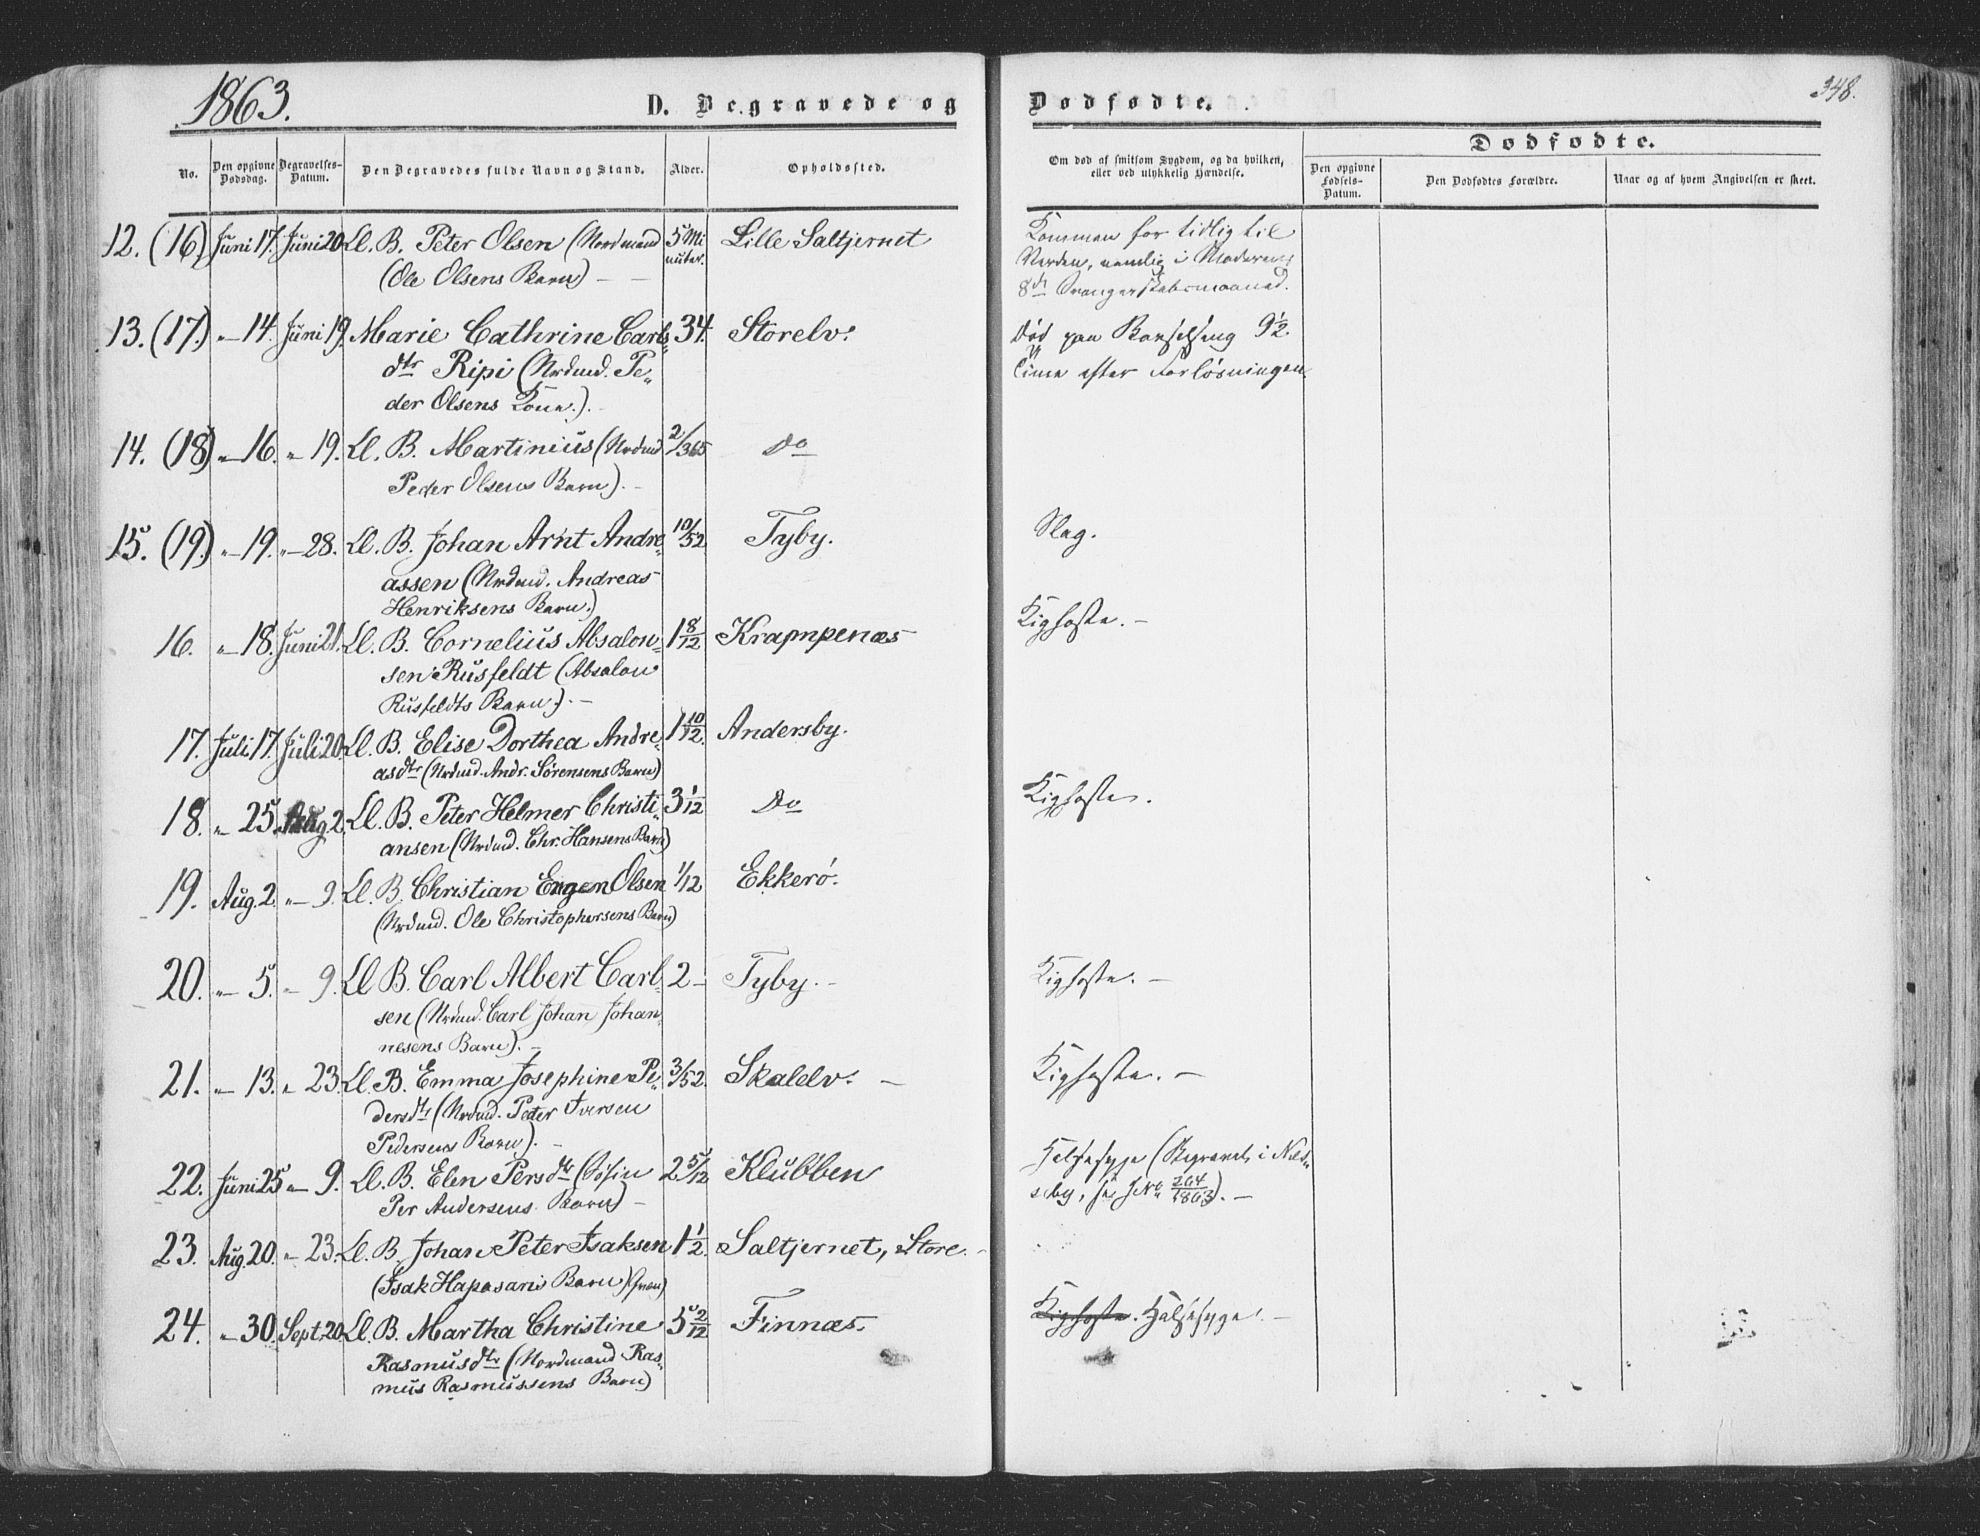 1863.
D. Begravede og
Dødfødte.
348.
No.
Den opgivne Dødsdag.
Begravelses-Datum.
Den Begravedes fulde Navn og Stand.
Alder.
Opholdssted.
Om død af smitsom Sygdom, og da hvilken,
eller ved ulykkelig Hændelse.
Dødfødte.
Den opgivne Fødsels-Datum.
Den Dødfødtes Forældre.
Naar og af hvem Angivelsen er skeet.
12. (16) Juni 17. Juni 20. Ll. B. Peter Olsen (Nordmand 5 Mi Lille Saltjernet Kommen for tidlig til
(Ole Olsens Barn) — nuter. Verden, nemlig i Moderens
8de Svangerskabsmaaned.
13. (17.) „— 14. Juni 19. Marie Cathrine Carls- 34. Storelv. Død paa Barselseng 9½
dtr Ripi (Nrdmd. Pe- Time efter Forløsningen.
der Olsens Kone.). —
14. (18) „— 16. „— 19. Ll. B. Martinius (Nrdmd 2/365 Do
Peder Olsens Barn). —
15. (19.) „— 19. „— 28. Ll. B. Johan Arnt Andre- 10/52 Tyby. Slag.
assen (Nrdmd. Andreas
Henriksens Barn.)
16. „— 18. Juni 21. Ll. B. Cornelius Absalon- 1 8/12 Krampenæs Kighoste. —
sen Rusfeldt (Absalon
Rusfeldts Barn). —
17. Juli 17. Juli 20. Ll. B. Elise Dorthea Andre- 1 10/12. Andersby.
asdtr (Nrdmd. Andr. Sørensens Barn)
18. „— 25. Aug 2. Ll. B. Peter Helmer Christi- 3 1/12 Do Kighoste.
ansen (Nrdmd. Chr. Hansens Barn)
19. Aug. 2. „— 9. Ll. B. Christian Eugen Olsen 1/12 Ekkerø.
(Nrdmd. Ole Christophersens Barn)
20. „— 5. „— 9. Ll B. Carl Albert Carl- 2 — Tyby. — Kighoste. —
sen (Nrdmd. Carl Johan Johan-
nesens Barn). —
21. „— 13. „ 23. Ll. B. Emma Josephine Pe- 3/52. Skalelv. — Kighoste. —
dersdtr (Nrdmd. Peder Iversen
Pedersens Barn). —
22. Juni 25 „— 9. Ll. B. Elen Persdtr (Søfin 2 5/12 Klubben Halssyge (Begravet i Næs-
Per Andersens Barn) — seby, se JNo 264/1863). —
23. Aug. 20. „— 23. Ll. B. Johan Peter Isaksen 1 1/2. Saltjernet, Store. —
(Isak Hapasaris Barn)
24. „— 30. Sept. 20. Ll. B. Martha Christine 5 2/12 Finnæs. Kighoste. Halssyge. —
Rasmusdtr (Nordmand Ras-
mus Rasmussens Barn)